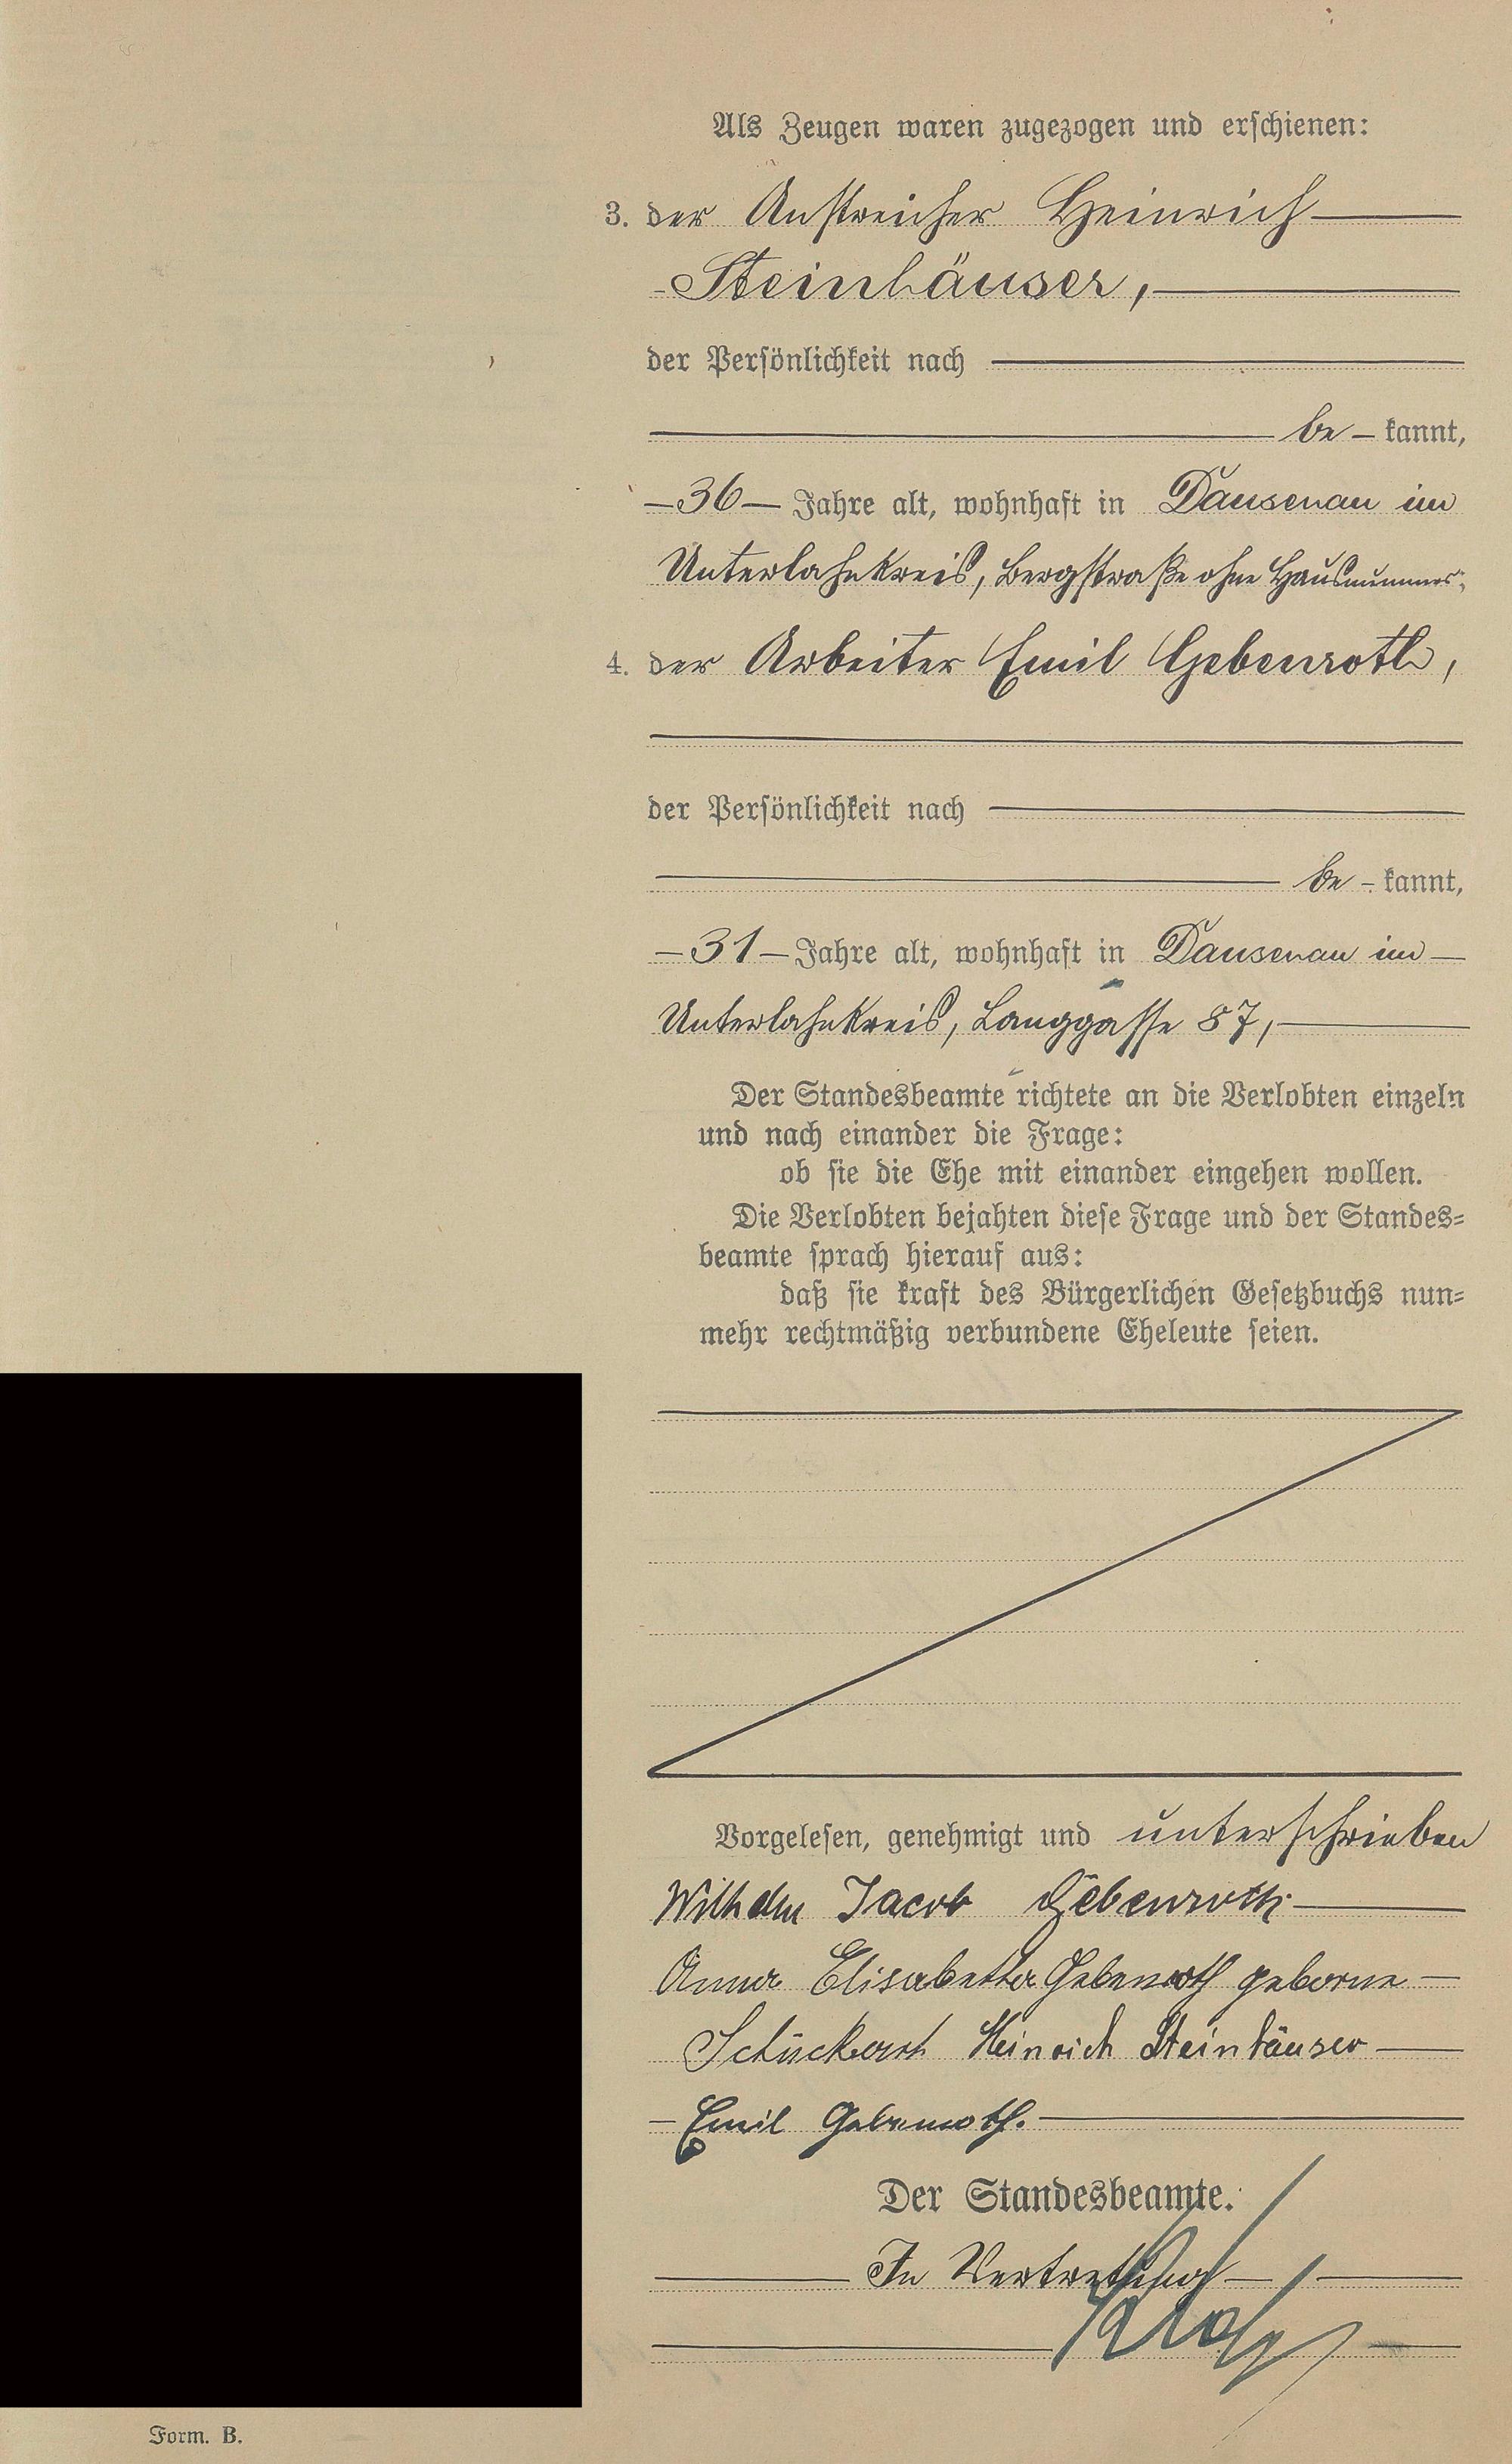 Als Zeugen waren zugezogen und erschienen:
3. der Anstreicher Heinrich
Steinhäuser,
der Persönlichkeit nach
be - kannt,
36 Jahre alt, wohnhaft in Dausenau im
Unterlahnkreis, Bergstraße ohne Hausnummer;
4. der Arbeiter Emil Gebenroth,
der Persönlichkeit nach
be - kannt,
31 Jahre alt, wohnhaft in Dausenau im
Unterlahnkreis, Langgasse 87,
Der Standesbeamte richtete an die Verlobten einzeln
und nach einander die Frage:
ob sie die Ehe mit einander eingehen wollen.
Die Verlobten bejahten diese Frage und der Standes-
beamte sprach hierauf aus:
daß sie kraft des Bürgerlichen Gesetzbuchs nun-
mehr rechtmäßig verbundene Eheleute seien.
Vorgelesen, genehmigt und unterschrieben
Wilhelm Jacob Gebenroth
Anna Elisabetha Gebenroth geborne
Schückert Heinrich Steinhäuser
Emil Gebenroth.
Der Standesbeamte.
In Vertretung
Form. B.